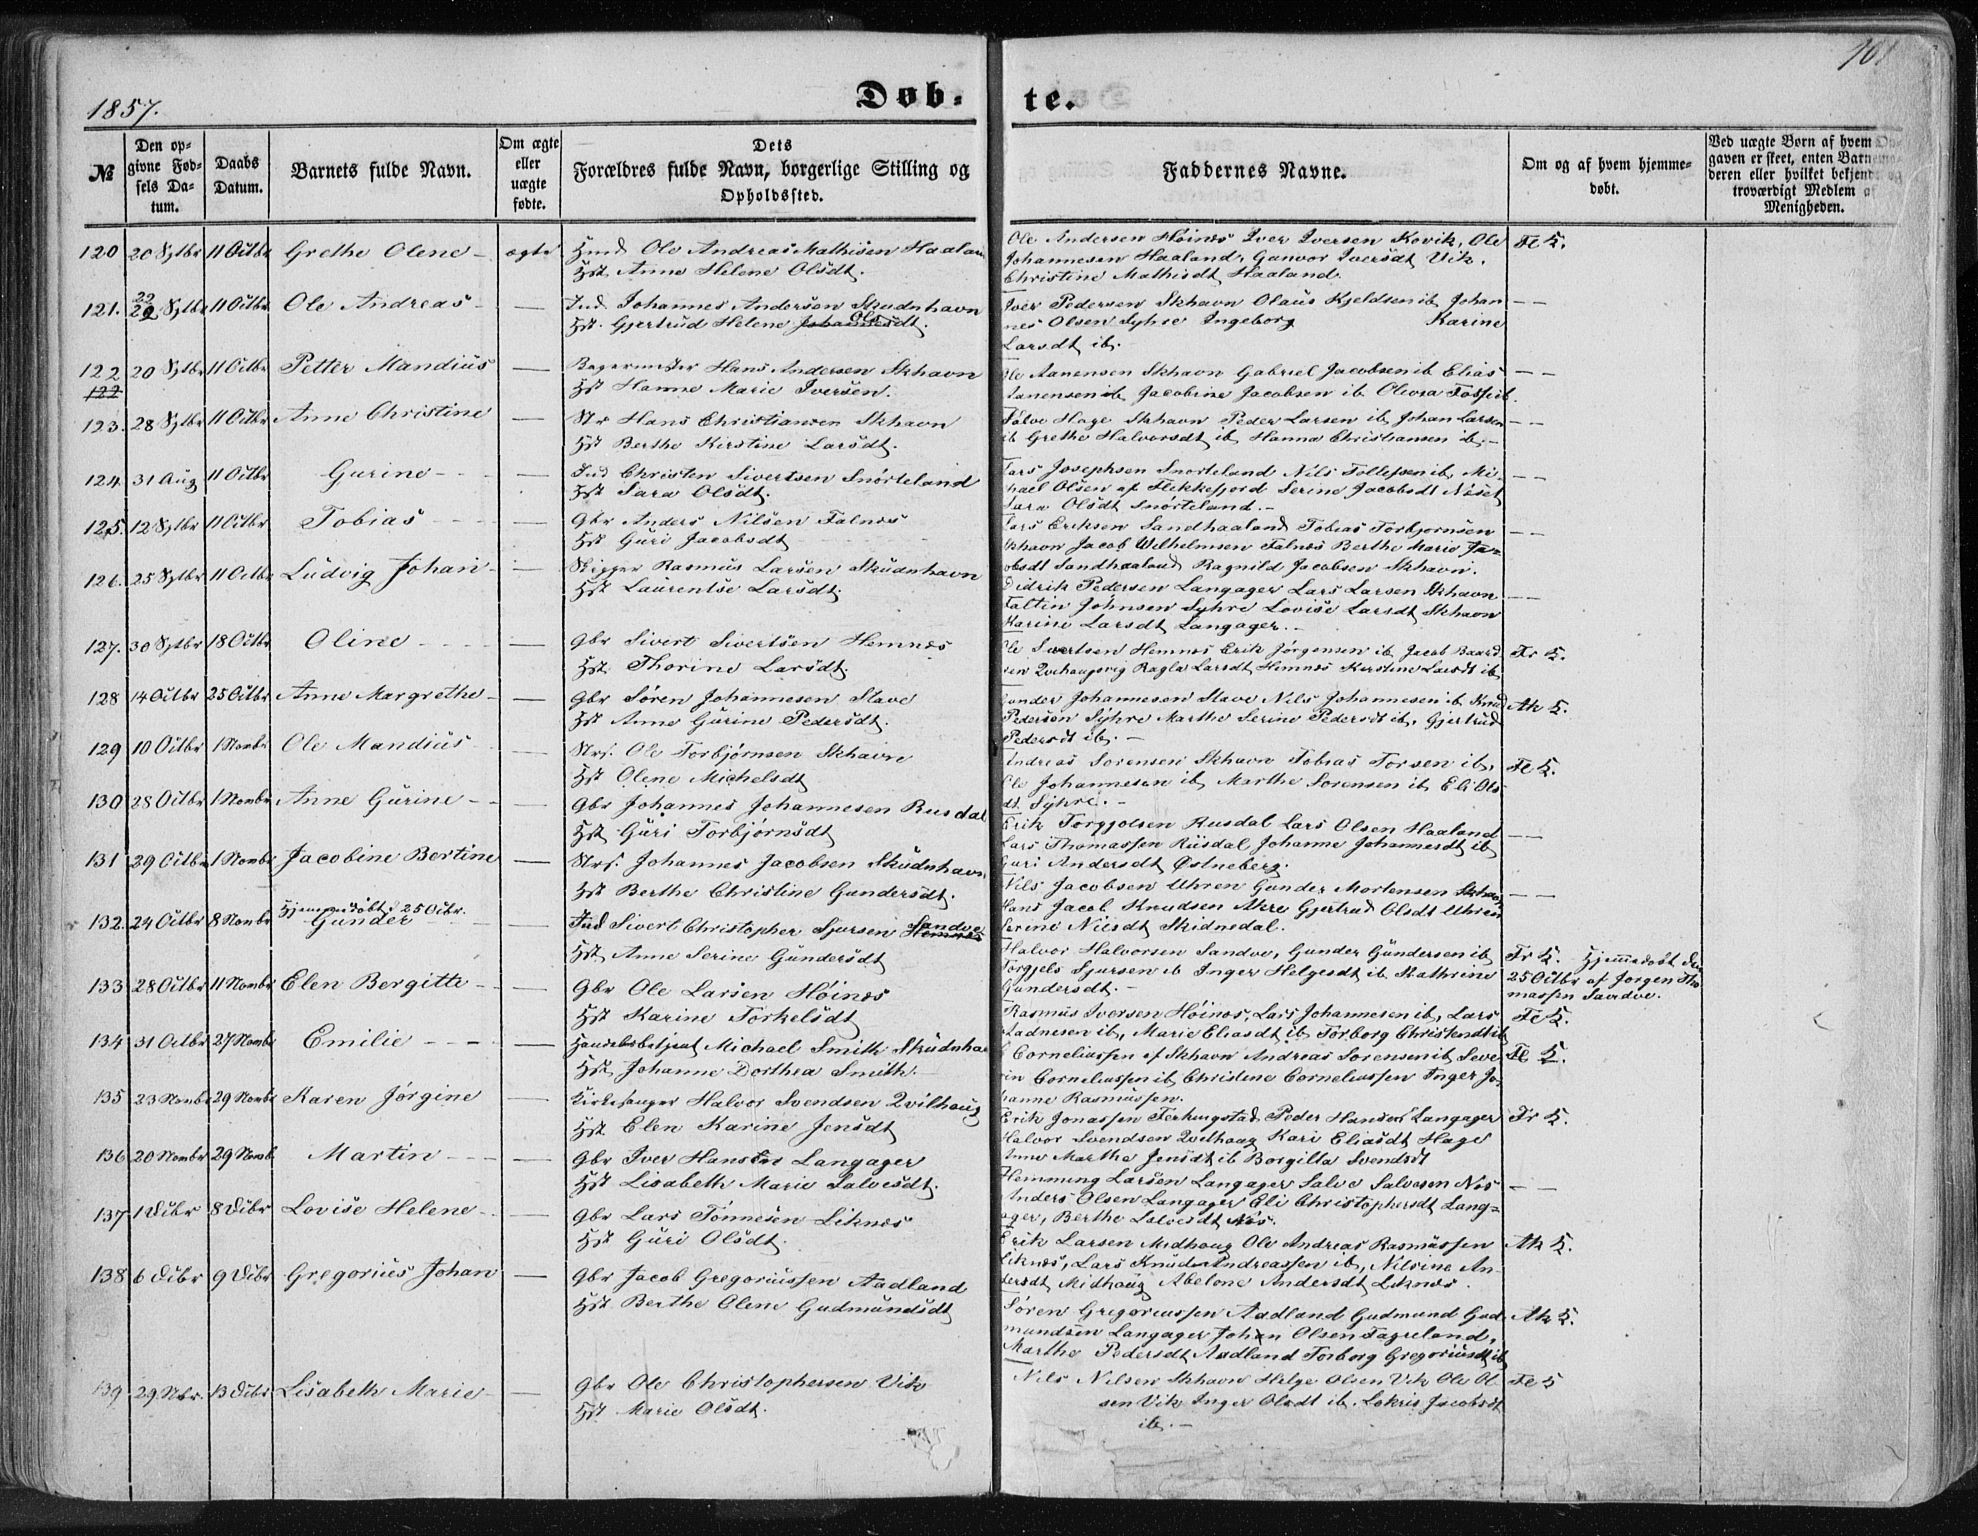 1857.
Døb-
te.
101
№
Den op-
givne Fød-
sels Da-
tum.
Daabs
Datum.
Barnets fulde Navn.
Om ægte
eller
uægte
fødte.
Dets
Forældres fulde Navn, borgerlige Stilling og
Opholdssted.
Faddernes Navne.
Om og af hvem hjemme-
døbt.
Ved uægte Børn af hvem Op-
gaven er skeet, enten Barnemo-
deren eller hvilket bekjendt og
troværdigt Medlem af
Menigheden.
120 20 Sptbr 11 Octbr Grethe Olene - ægte Hmd Ole Andreas Mathisen Haaland
Hst. Anne Helene Olsdt.
Ole Andersen Høines Iver Iversen Kovik, Ole Fe K.
Johannesen Haaland, Gunvor Iversdt Vik,
Christine Mathisdt Haaland.
121. 22 Sptbr 11 Octbr Ole Andreas - — Ind Johannes Andersen Skudnhavn
Hst. Gjertrud Helene Olsdt.
Iver Pedersen Skhavn Olaus Kjeldsen ib Johan — —
nes Olsen Syhre Ingeborg Karine
Larsdt ib.
122 20 Sptbr 11 Octbr Petter Mandius — Bagermester Hans Andersen Skhavn
122 Hst Hanne Marie Iversen.
Ole Aanensen Skhavn Gabriel Jacobsen ib Elias — —
Aanensen ib Jacobine Jacobsen ib Olivia
123. 28 Sptbr 11 Octbr Anne Christine — Str Hans Christiansen Skhavn
Hst Berthe Kirstine Larsdt.
Tølve Hage Skhavn Peder Larsen ib Johan Larsen — —
ib Grethe Halvorsdt ib Hanna Christiansen ib. -
124. 31 Aug 11 Octbr Gurine - - — Ind Christen Sivertsen Snørteland
Hst Sara Olsdt.
Lars Josephsen Snorteland Nils Tollefsen ib, Mi- — —
chael Olsen af Flekkefjord Serine Jacobsdt Nøset
Sara Olsdt Snørteland. -
125. 12 Sptbr 11 Octbr Tobias - - — Gbr Anders Nilsen Falnes
Hst Guri Jacobsdt
Lars Eriksen Sandhaaland Tobias Torbjornsen — —
Skhavn Jacob Wilhelmsen Falnes Berthe Marie Ja-
cobsdt Sandhaaland Ragnild Jacobsen Skhavn.
126. 25 Sptbr 11 Octbr Ludvig Johan - — Skipper Rasmus Larsen Skudnhavn
Hst Laurentse Larsdt.
Didrik Pedersen Langager Lars Larsen Skhavn — —
Faltin Johnsen Syhre Lovise Larsdt Skhavn
Karine Larsdt Langager. -
127. 30 Sptbr 18 Octbr Oline - - — Gbr Sivert Sivertsen Hemnes
Hst. Thorine Larsdt.
Ole Sivertsen Hemnes Erik Jørgensen ib Jacob Baard Fr K.
sen Ragla Larsdt Hemnes Kirstine Larsdt ib
128 14 Octbr 25 Octbr Anne Margrethe - — Gbr Søren Johannesen Stave
Hst Anne Gurine Pedersdt.
Gunder Johannesen Stave Nils Johannesen ib Knud Ak K.
Pedersen Syhre Marthe Serine Pedersdt ib, Gjertrud
Pedersdt ib. -
129 10 Octbr 1 Novbr Ole Mandius Strf. Ole Torbjørnsen Skhavn
Hst Olene Michelsdt
Andreas Sorensen Skhavn Tobias Torsen ib, Fe K.
Ole Johannesen ib Marthe Sorensen ib Eli Ols
dt Syhre. -
130 28 Octbr 1 Novbr Anne Gurine - - — Gbr Johannes Johannesen Rusdal
Hst Guri Torbjørnsdt
Erik Torgjolsen Rusdal Lars Olsen Haaland — —
Lars Thomassen Rusdal Johanne Johannesdt ib
Guri Andersdt Østneberg.
131 29 Octbr 1 Novbr Jacobine Bertine — Strf. Johannes Jacobsen Skudnhavn
Hst Berthe Christine Gundersdt.
Nils Jacobsen Uhren Gunder Mortensen Skhavn — —
Hans Jacob Knudsen Akre Gjertrud Olsdt Uhren
Serine Nilsdt Skidnedal.
Hjemmedøbt d. 25 Octbr.
132. 24 Octbr 8 Novbr Gunder - — Ind Sivert Christopher Sjursen Sandve
Hst, Anne Serine Gundersdt
Halvor Halvorsen Sandve, Gunder Gundersen ib Fr K. - Hjemedobt den
Torgjels Sjursen ib Inger Helgesdt ib Kathrine 25 Octbr af Jorgen Tho
Gundersdt. - massen Sandve.
133 28 Octbr 11 Novbr Elen Bergitte - - — Gbr Ole Larsen Høines
Hst Karine Torkelsdt
Rasmus Iversen Høines, Lars Johannesen ib, Lars Fe K.
Aadnesen ib, Marie Eliasdt ib Torborg Christensdt ib
134 31 Octbr 27 Novbr Emilie - - - — Handelsbetjent Michael Smith Skudnhavn
Hst, Johanne Dorthea Smith. -
Corneliussen af Skhavn Andreas Sorensen ib Seve Fe K.
rin Corneliussen ib Christine Corneliussen Inger Jo-
hanne Rasmussen.
135 23 Novbr 29 Novbr Karen Jørgine — Kirkesanger Halvor Svendsen Qvilhaug
Hst. Elen Karine Jensdt
Erik Jonassen Ferkingstad Peder Hansen Langager Fr K.
Halvor Svendsen Qvilhaug Kari Eliasdt Hage
Anne Marthe Jensdt ib Borgilla Svendsdt
136 20 Novbr 29 Novb Martin - - — Gbr Iver Hansen Langager
Hst Lisabeth Marie Salvesdt.
Hemming Larsen Langager Salve Salvesen Nes — —
Anders Olsen Langager Eli Christophersdt Lang-
ager, Berthe Salvesdt Nes.
137 1 Decbr 8 Decbr Lovise Helene - - — Gbr Lars Tønnesen Liknes
Hst Guri Olsdt.
Erik Larsen Midhaug Ole Andreas Rasmussen Ak K.
Liknes, Lars Knud Andreassen ib, Nilsine An-
dersdt Midhaug Abelone Andersdt Liknes.
138 6 Decbr 9 Decbr Gregorius Johan — Gbr Jacob Gregoriussen Aadland
Hst. Berthe Olene Gudmundsdt
Søren Gregoriussen Aadland Gudmund Gud- Ak K.
mundsen Langager Johan Olsen Fagreland,
Marthe Pedersdt Aadland Torborg Gregoriusdt ib
139 29 Nbr. 13 Decbr Lisabeth Marie - — Gbr Ole Christophersen Vik
Hst Marie Olsdt.
Nils Nilsen Skhavn Helge Olsen Vik Ole Ol Fe K
sen Vik Inger Olsdt ib. Lokris Jacobsdt
ib. -